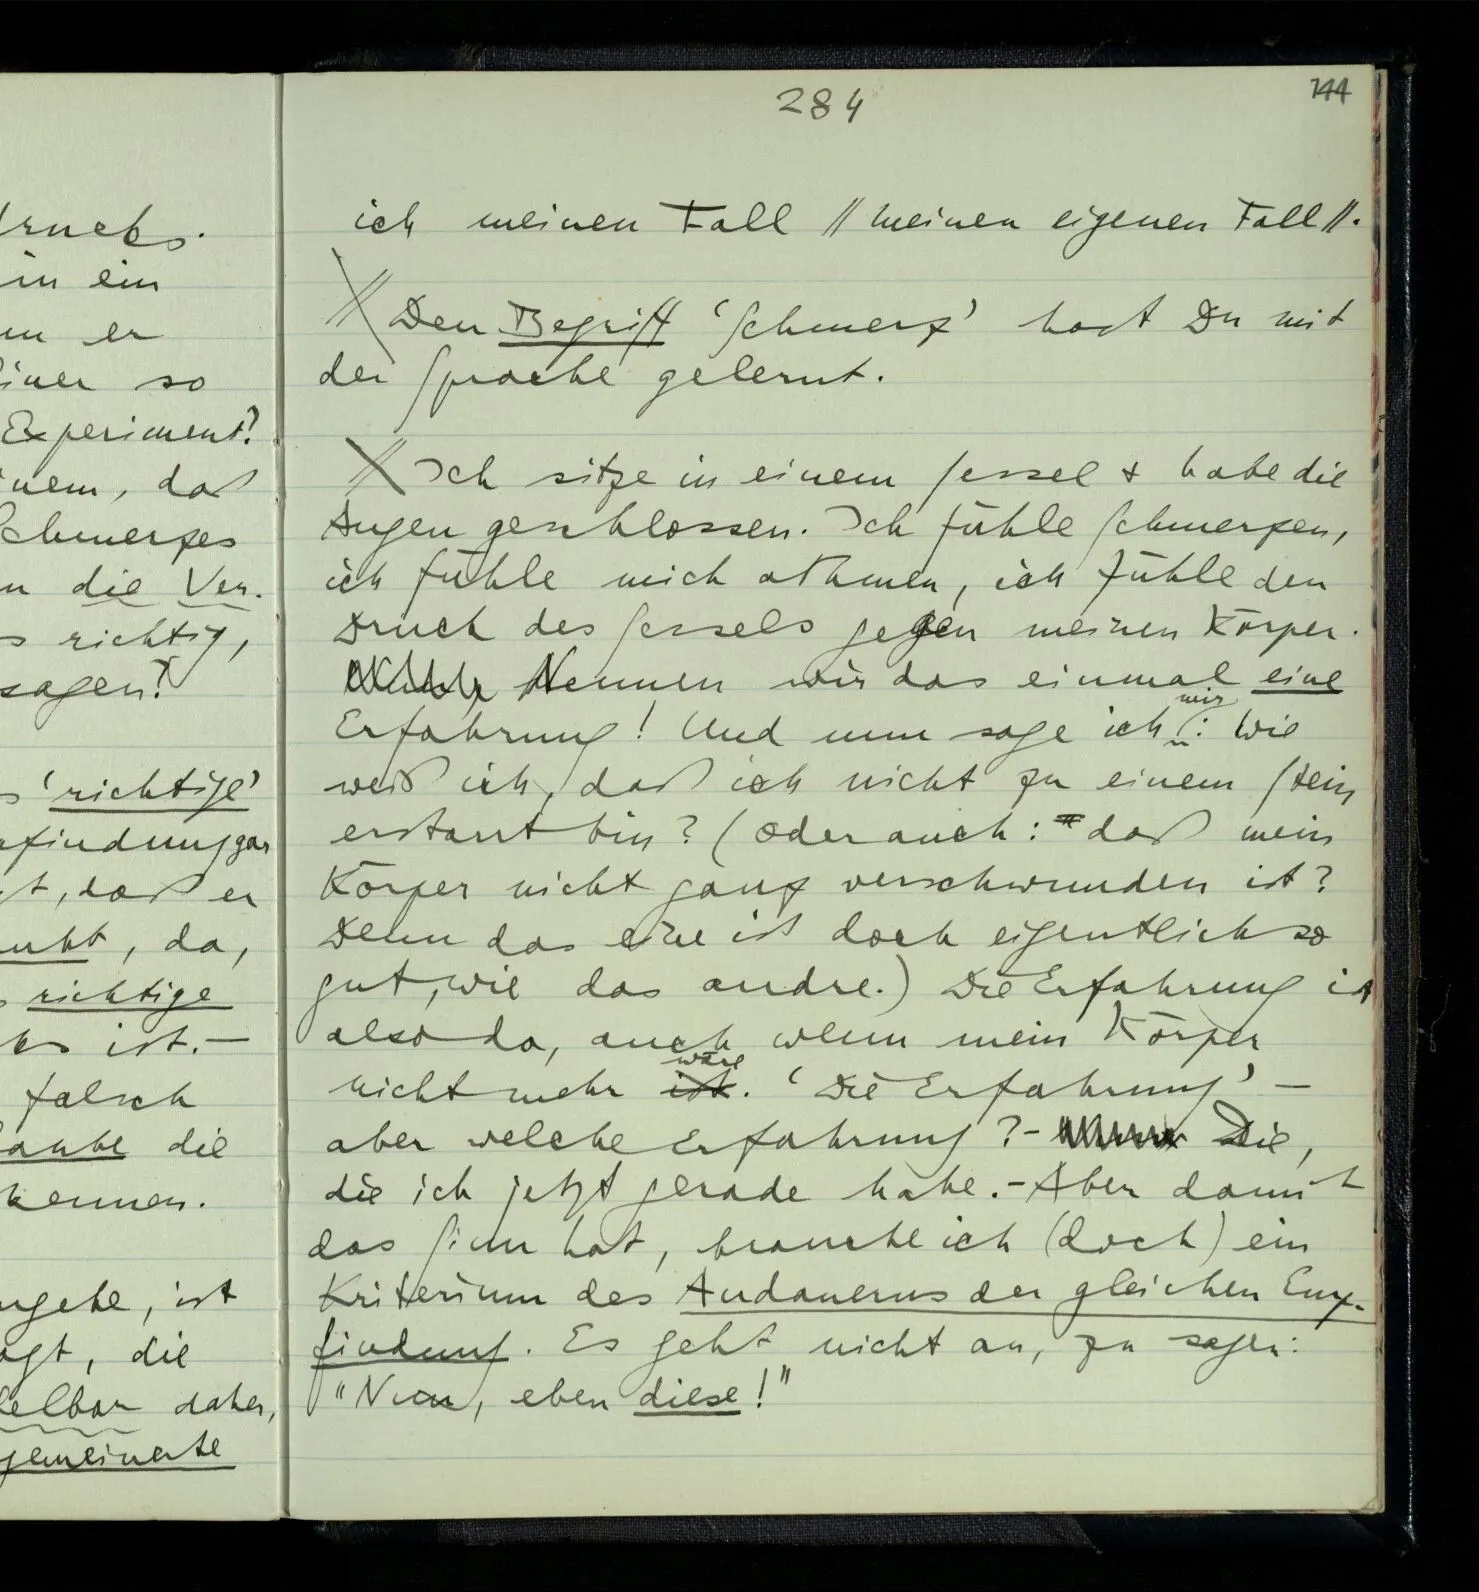 drucks.
in ein
nn er
einer so
Experiment?
inem, daß
Schmerzes
n die Ver-
s richtig,
sagen?
s ‘richtige’
t, daß er
ubt, da,
s richtige
es ist. —
falsch
laube die
kennen.
ngebe, ist
agt, die
telbar daher,
gemeinerte
284
144
ich meinen Fall // meinen eigenen Fall //.
Den Begriff ‘Schmerz’ hast Du mit
der Sprache gelernt.
Ich sitze in einem Sessel & habe die
Augen geschlossen. Ich fühle Schmerzen,
ich fühle mich athmen, ich fühle den
Druck des Sessels gegen meinen Körper.
Nennen wir das einmal eine
mir
Erfahrung! Und nun sage ich: Wie
weiß ich, daß ich nicht zu einem Stein
erstarrt bin? (Oder auch: daß mein
Körper nicht ganz verschwunden ist?
Denn das eine ist doch eigentlich so
gut, wie das andre.) Die Erfahrung ist
also da, auch wenn mein Körper
wäre
nicht mehr ist. ‘Die Erfahrung’ –
aber welche Erfahrung? – Die,
die ich jetzt gerade habe. – Aber damit
das Sinn hat, brauche ich (doch) ein
Kriterium des Andauerns der gleichen Emp-
findung. Es geht nicht an, zu sagen:
“Nun, eben diese!”